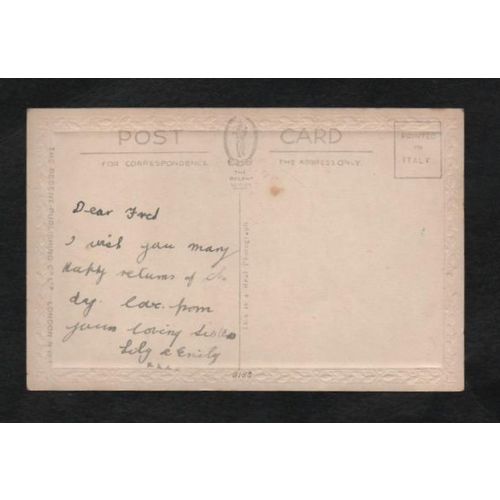 POST CARD
FOR CORRESPONDENCE
THE ADDRESS ONLY.
PRINTED
IN
ITALY
THE
REGENT
THE REGENT PUBLISHING CO LTD LONDON N.W.1
Dear Fred
I wish you many
Happy returns of
dy. love from
yours loving sisters
Lily & Emily
x x x x
This is a Real Photograph